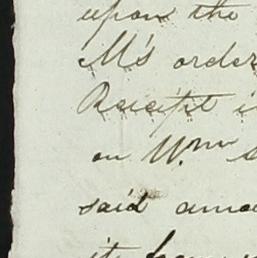 upon the
M's order
Receipt i
on Wm
said amo
it